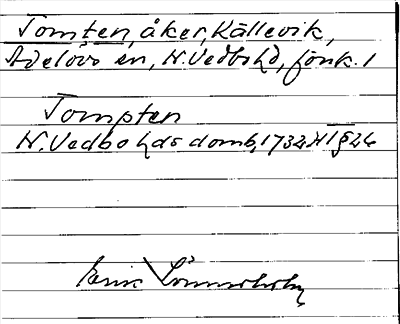 Tomten, åker, Källevik,
Adelövs sn, N. Vedbo hd, Jönk. l
Tompten
N. Vedbo hds domb, 1732 Ht § 26
Eric Lönnerholm